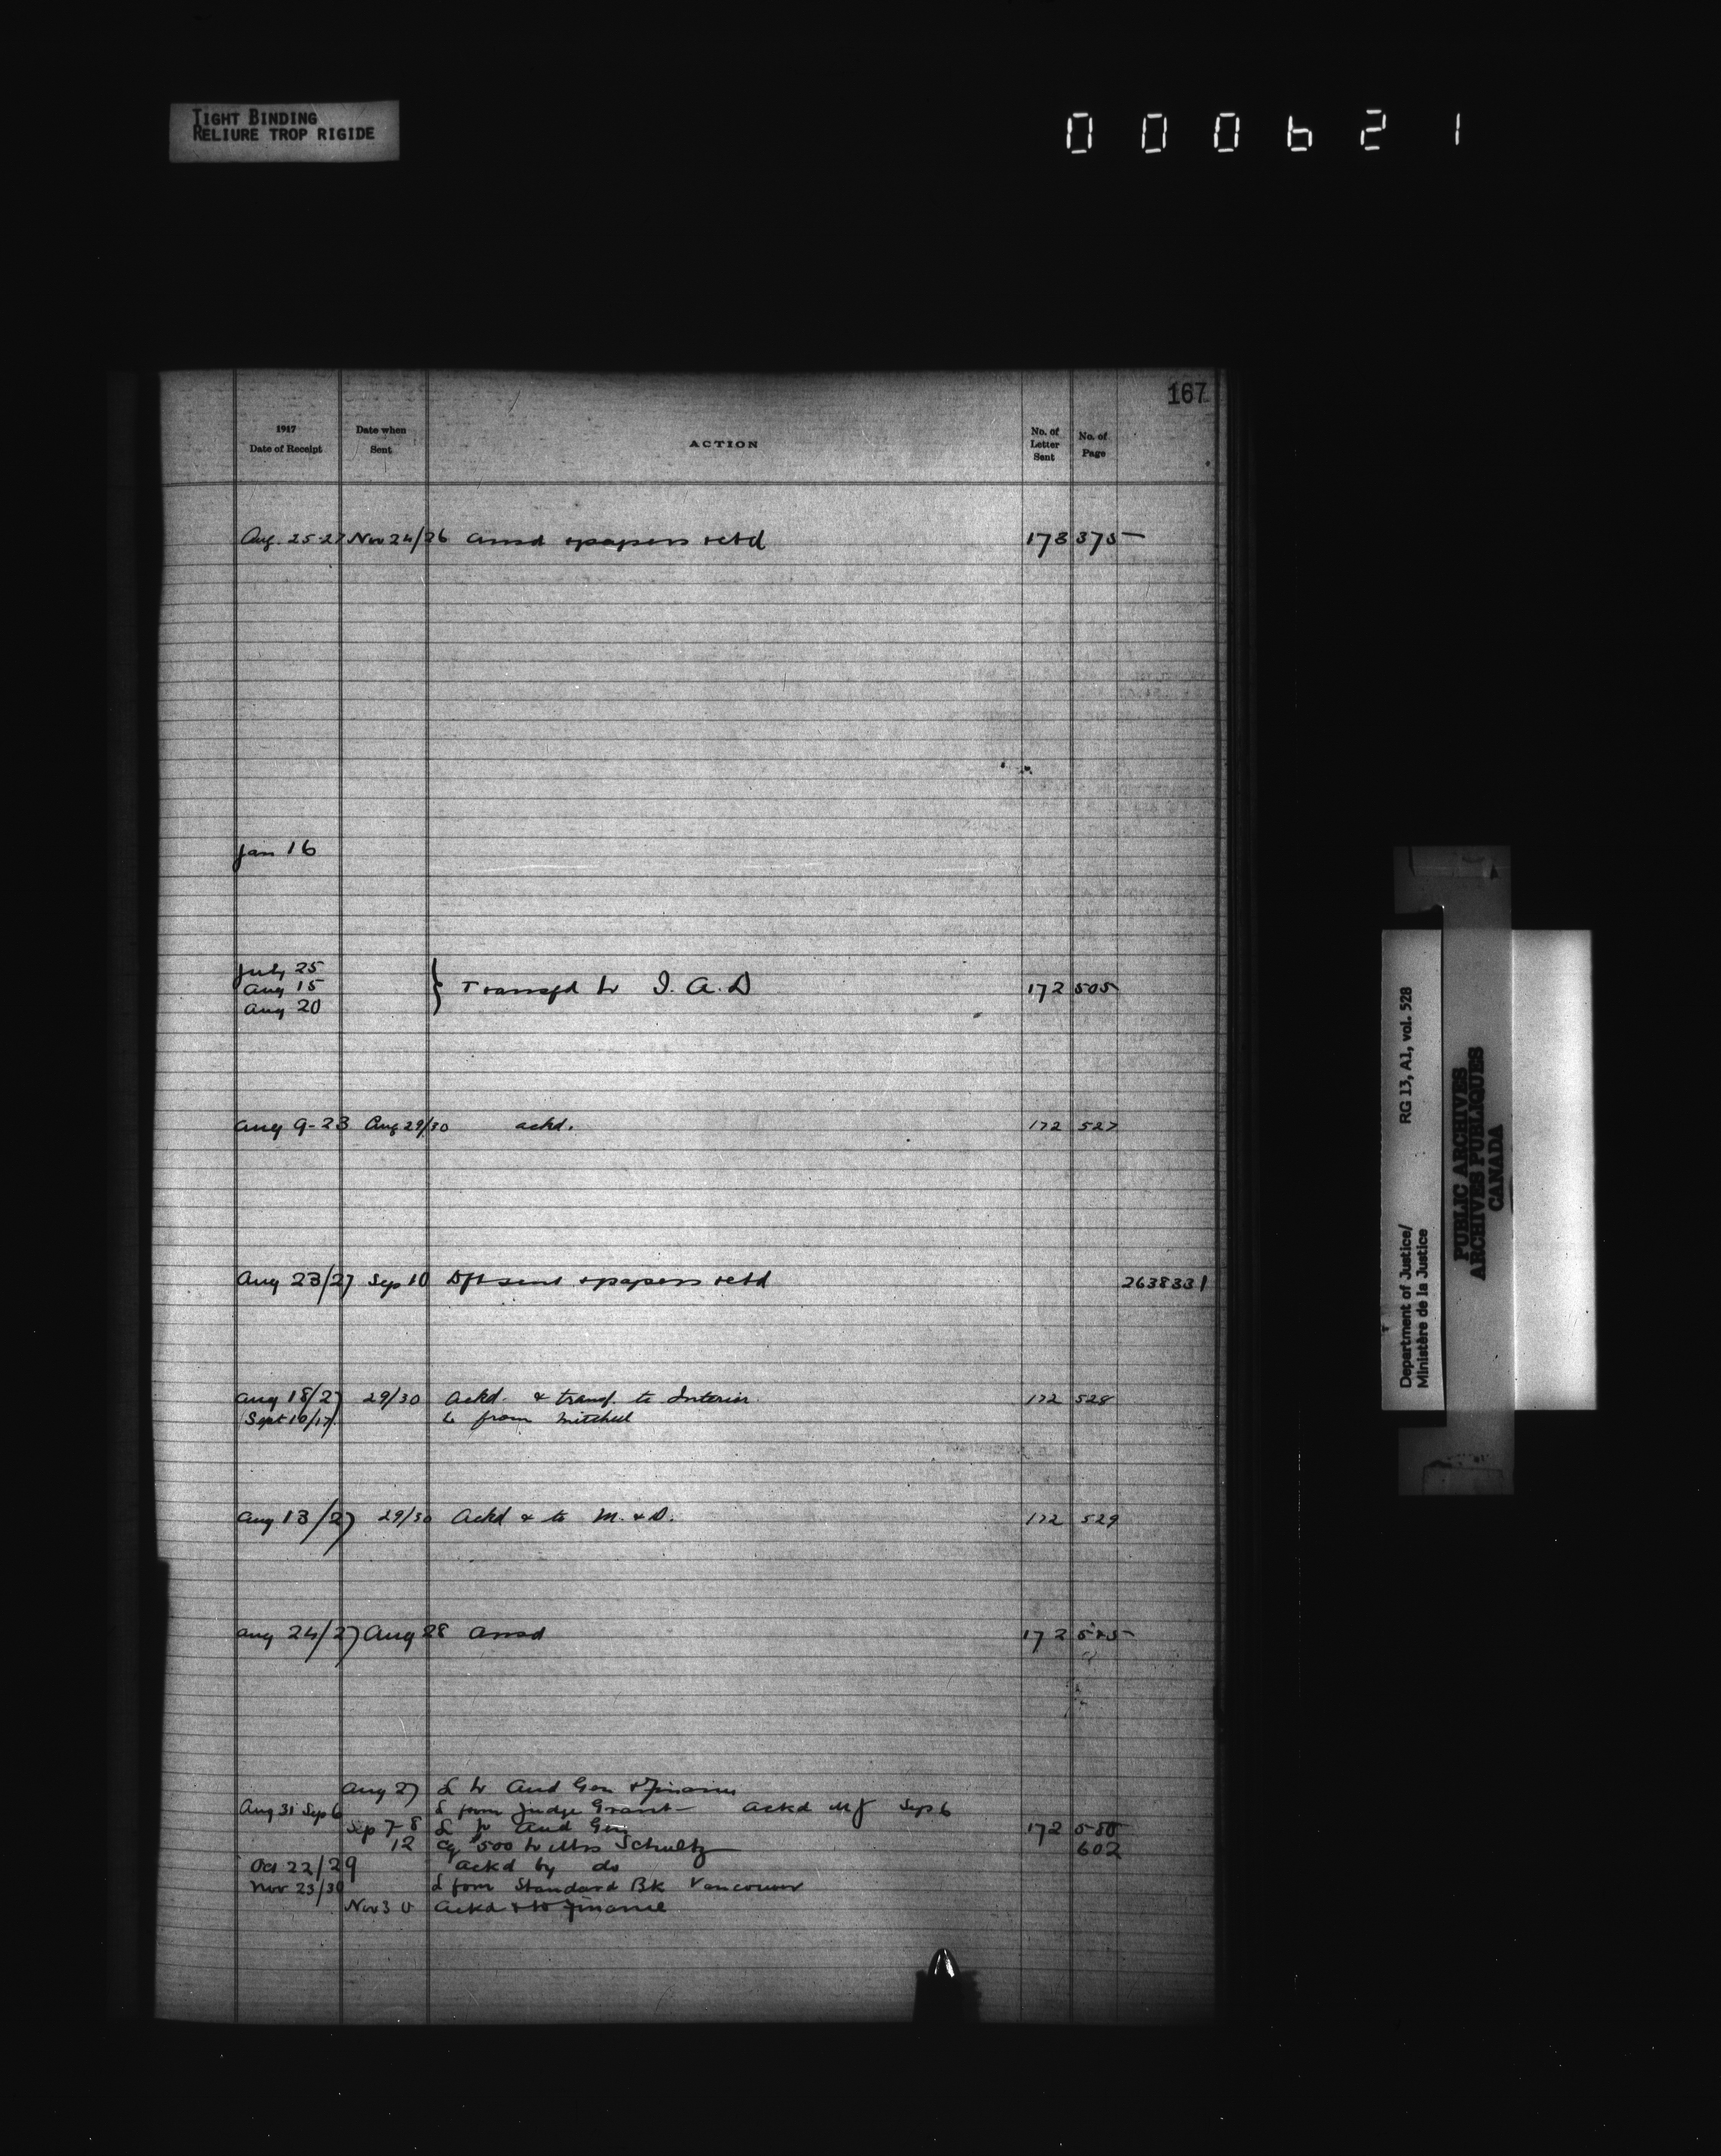 TIGHT BINDING
RELIURE TROP RIGIDE
000621
167
1917
Date of Receipt
Date when
Sent
ACTION
No. of
Letter
Sent
No. of
Page
Aug. 25-27 Nov 24/26 ansd & papers retd 173 375
Jan 16
July 25
Aug 15 } Transfd to I. A. D 172 505
Aug 20
Aug 9-23 Aug 29/30 ackd. 172 527
Aug 23/27 Sep 10 Dft sent & papers retd 2638331
Aug 18/27 29/30 Ackd & transf. to Interior 172 528
Sept 10/17 L from Mitchell
Aug 13/27 29/30 Ackd & to M. & D. 172 529
Aug 24/27 Aug 28 ansd 172
Aug 27 L to Aud Gen & Finance
Aug 31 Sep 6 L from Judge Grant — ackd MJ Sep 6
Sep 7-8 L to Aud Gen 172
12 Cq $500 to Mrs Schultz 602
Oct 22/29 ackd by do
Nov 23/30 L from Standard Bk Vancouver
Nov 30 ackd & to Finance
Department of Justice/ RG 13, A1, vol. 528
Ministère de la Justice
PUBLIC ARCHIVES
ARCHIVES PUBLIQUES
CANADA